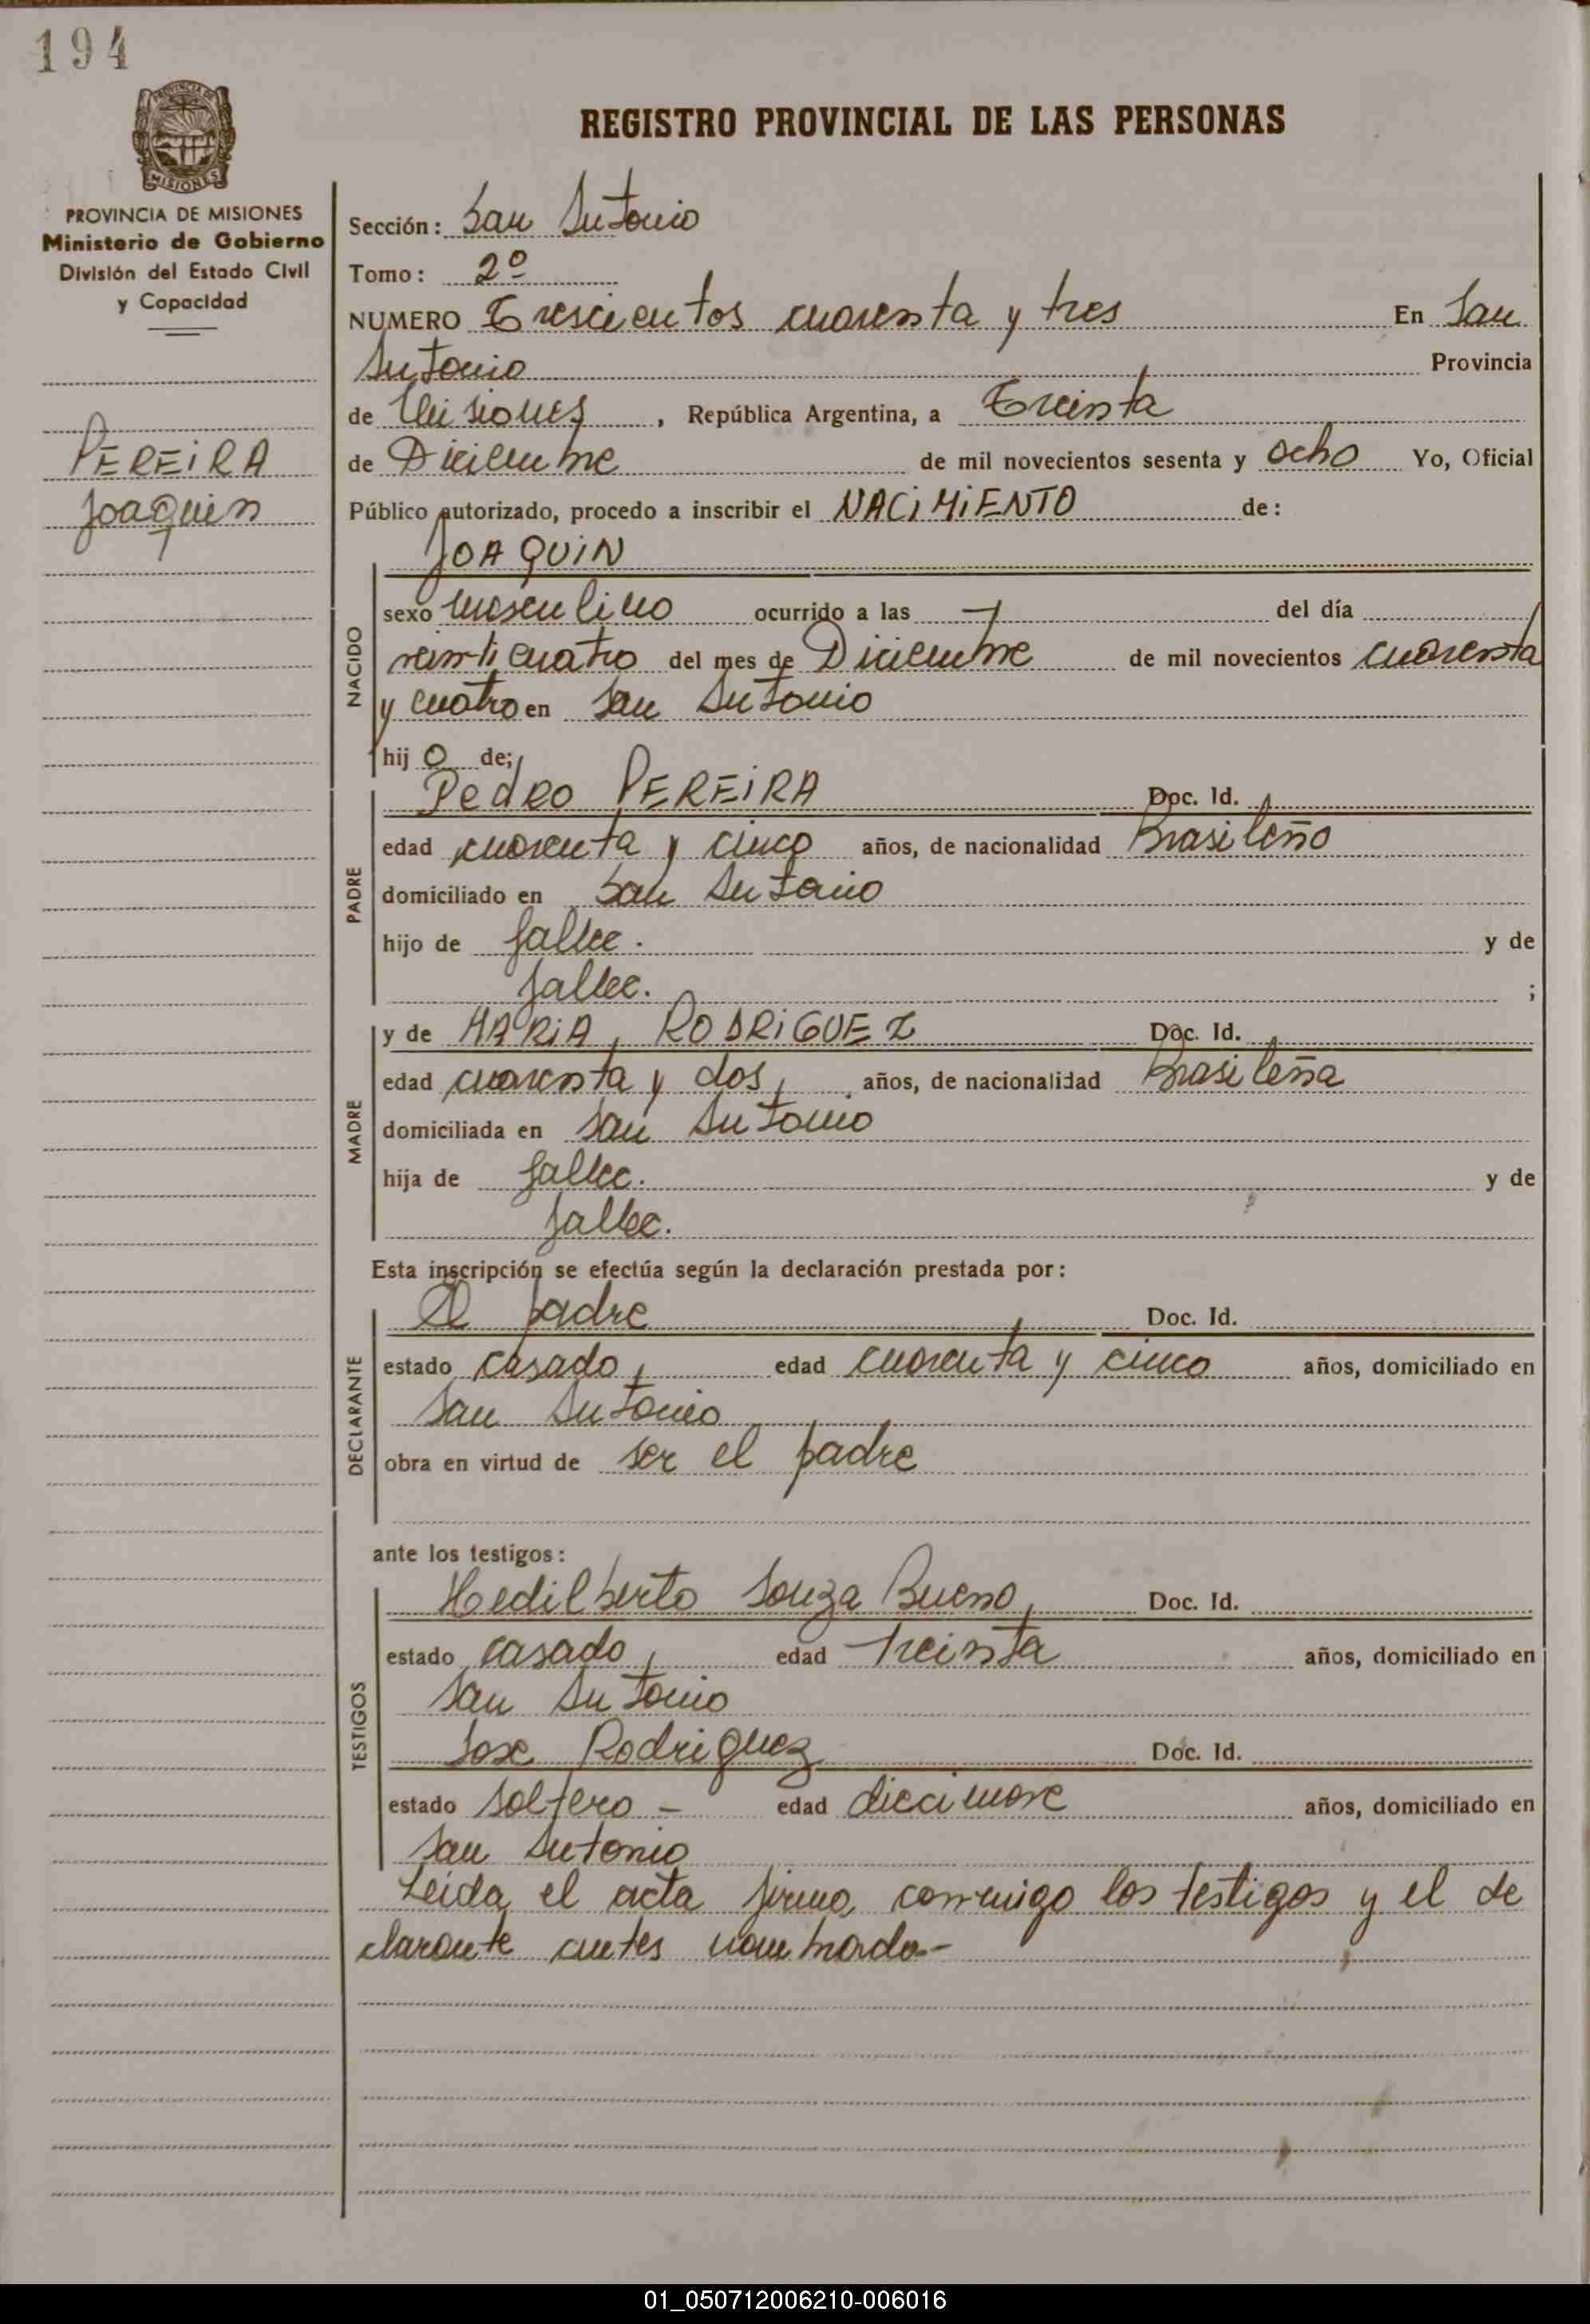 194
PROVINCIA DE
MISIONES
PROVINCIA DE MISIONES
Ministerio de Gobierno
División del Estado Civil
y Capacidad
PEREIRA
Joaquin
REGISTRO PROVINCIAL DE LAS PERSONAS
Sección: San Antonio
Tomo: 2º
NUMERO Trescientos cuarenta y tres En San
Antonio Provincia
de Misiones, República Argentina, a Treinta
de Diciembre de mil novecientos sesenta y ocho Yo, Oficial
Público autorizado, procedo a inscribir el NACIMIENTO de:
NACIDO
JOAQUIN
sexo masculino ocurrido a las — del día
veinticuatro del mes de Diciembre de mil novecientos cuarenta
y cuatro en San Antonio
hijo de;
PADRE
Pedro PEREIRA Doc. Id.
edad cuarenta y cinco años, de nacionalidad Brasileño
domiciliado en San Antonio
hijo de fallec. y de
fallec. ;
MADRE
y de MARIA RODRIGUEZ Doc. Id.
edad cuarenta y dos, años, de nacionalidad Brasileña
domiciliada en San Antonio
hija de fallec. y de
fallec.
Esta inscripción se efectúa según la declaración prestada por:
DECLARANTE
El padre Doc. Id.
estado casado, edad cuarenta y cinco años, domiciliado en
San Antonio
obra en virtud de ser el padre
ante los testigos:
TESTIGOS
Hedilberto Souza Bueno, Doc. Id.
estado casado, edad treinta años, domiciliado en
San Antonio
Jose Rodriguez Doc. Id.
estado soltero - edad diecinove años, domiciliado en
San Antonio
Leida el acta firma conmigo los testigos y el de
clarante antes nombrado-
01_050712006210-006016